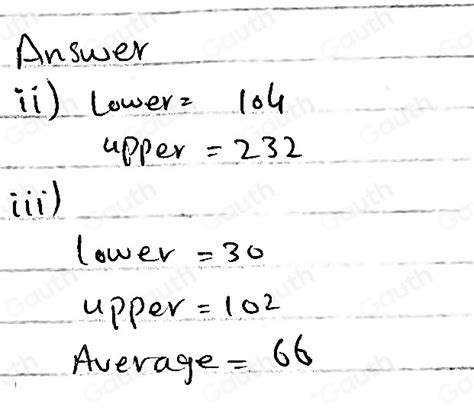 Answer
ii) Lower = 104
upper = 232
iii)
lower = 30
upper = 102
Average = 66